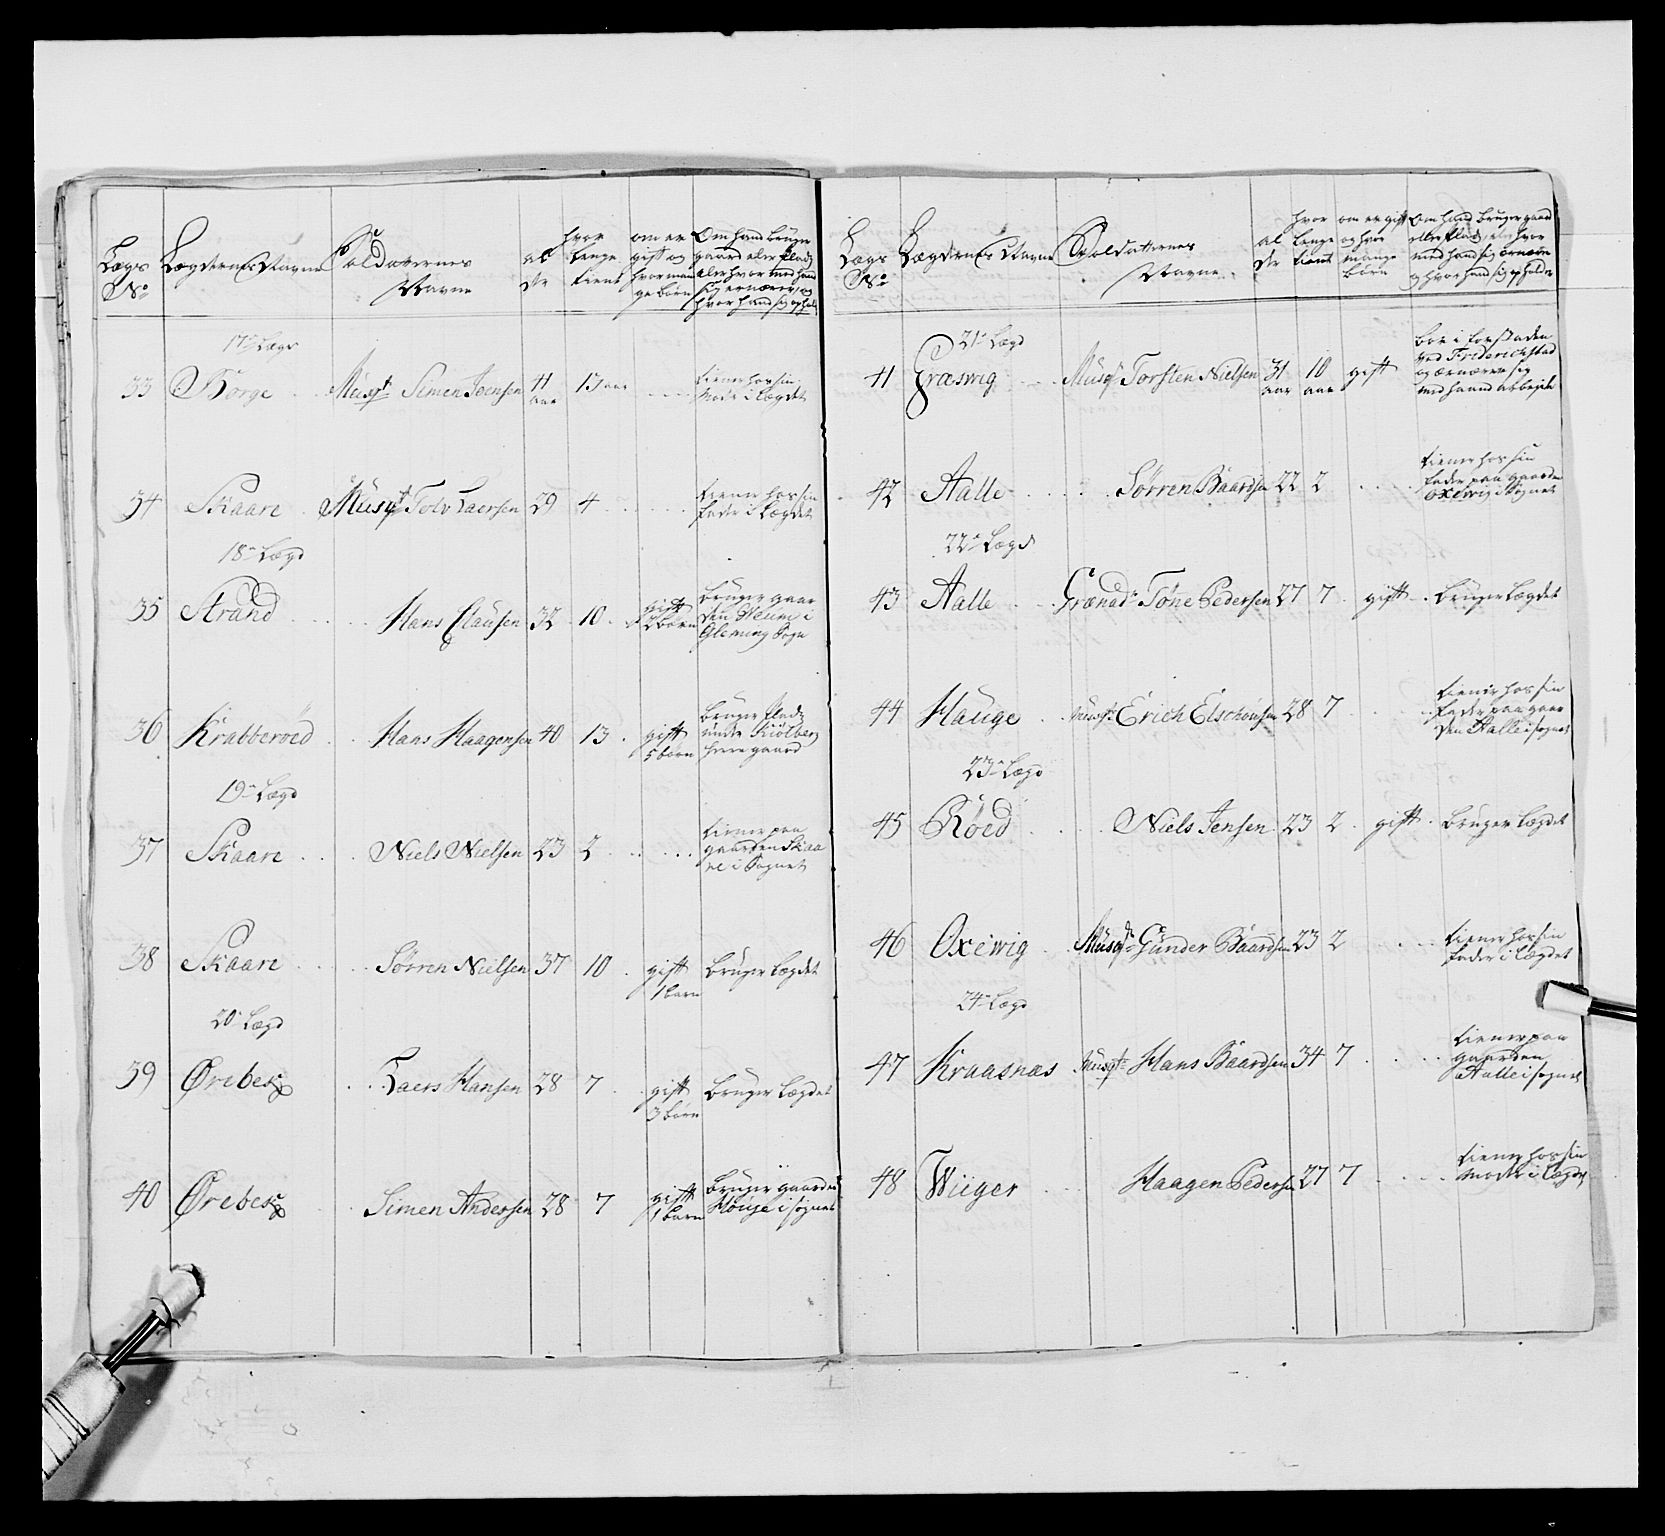 Lægs No
Lægdernes Nagne
Soldaternes Navne
alder
hvor lenge tient
om er gift og hvor mange børn
Om hand bruger gaard eller Plads eller hvor med hand sig ernærer, og hvor hand sig opholder
17de Lægd
33 Borge Musqt Simen Joensen 41 aar 13 aar tiener hos sin Moder i Lægdet
34 Skaare Musqt Tolv Laersen 29 4 tiener hos sin fader i Lægdet
18de Lægd
35 Strand Hans Clausen 32 10 gift 2 børn bruger gaarden Veum i Glemung Sogn
36 Krabberöed Hans Haagensen 40 13 gift 5 børn bruger Plads under Kiölberg herregaard
19de Lægd
37 Skaare Niels Nielsen 23 2 tiener paa gaarden Skaare i Sognet
38 Skaare Sörren Nielsen 37 10 gift 1 barn bruger Lægdet
20de Lægd
39 Örebek Laers Hansen 28 7 gift 3 børn bruger Lægdet
40 Örebek Simen Andersen 28 7 gift 1 barn bruger gaarden Houge i sognet
Lægs No
Lægdernes Nagne
Soldatternes Navne
alder
hvor lenge tient
om er gift og hvor mange børn
Om hand bruger gaard eller Plads, eller hvor med hand sig ernærer og hvor hand sig opholder
21de Lægd
41 Græswig Musqt Torsten Nielsen 31 aar 10 aar gift boe i forstaden ved Friderichstad og ernærer sig med haand arbejde
42 Aalle Sörren Baardsen 22 2 tiener hos sin fader paa gaarden Oxewig i Sognet
22de Lægd
43 Aalle Grænadr Töne Pedersen 27 7 gift bruger Lægdet
44 Hauge Musqt Erich Elschousen 28 7 tiener hos sin fader paa gaarden Aalle i sognet
23de Lægd
45 Röed Niels Jensen 23 2 gift bruger Lægdet
46 Oxewig Musqt Gunder Baardsen 23 2 tiener hos sin fader i Lægdet
24de Lægd
47 Kraasnas Musqt Hans Baardsen 34 7 tiener paa gaarden Aalle i sognet
48 Wiiger Haagen Pedersen 27 7 tiener hos sin Moder i Lægdet